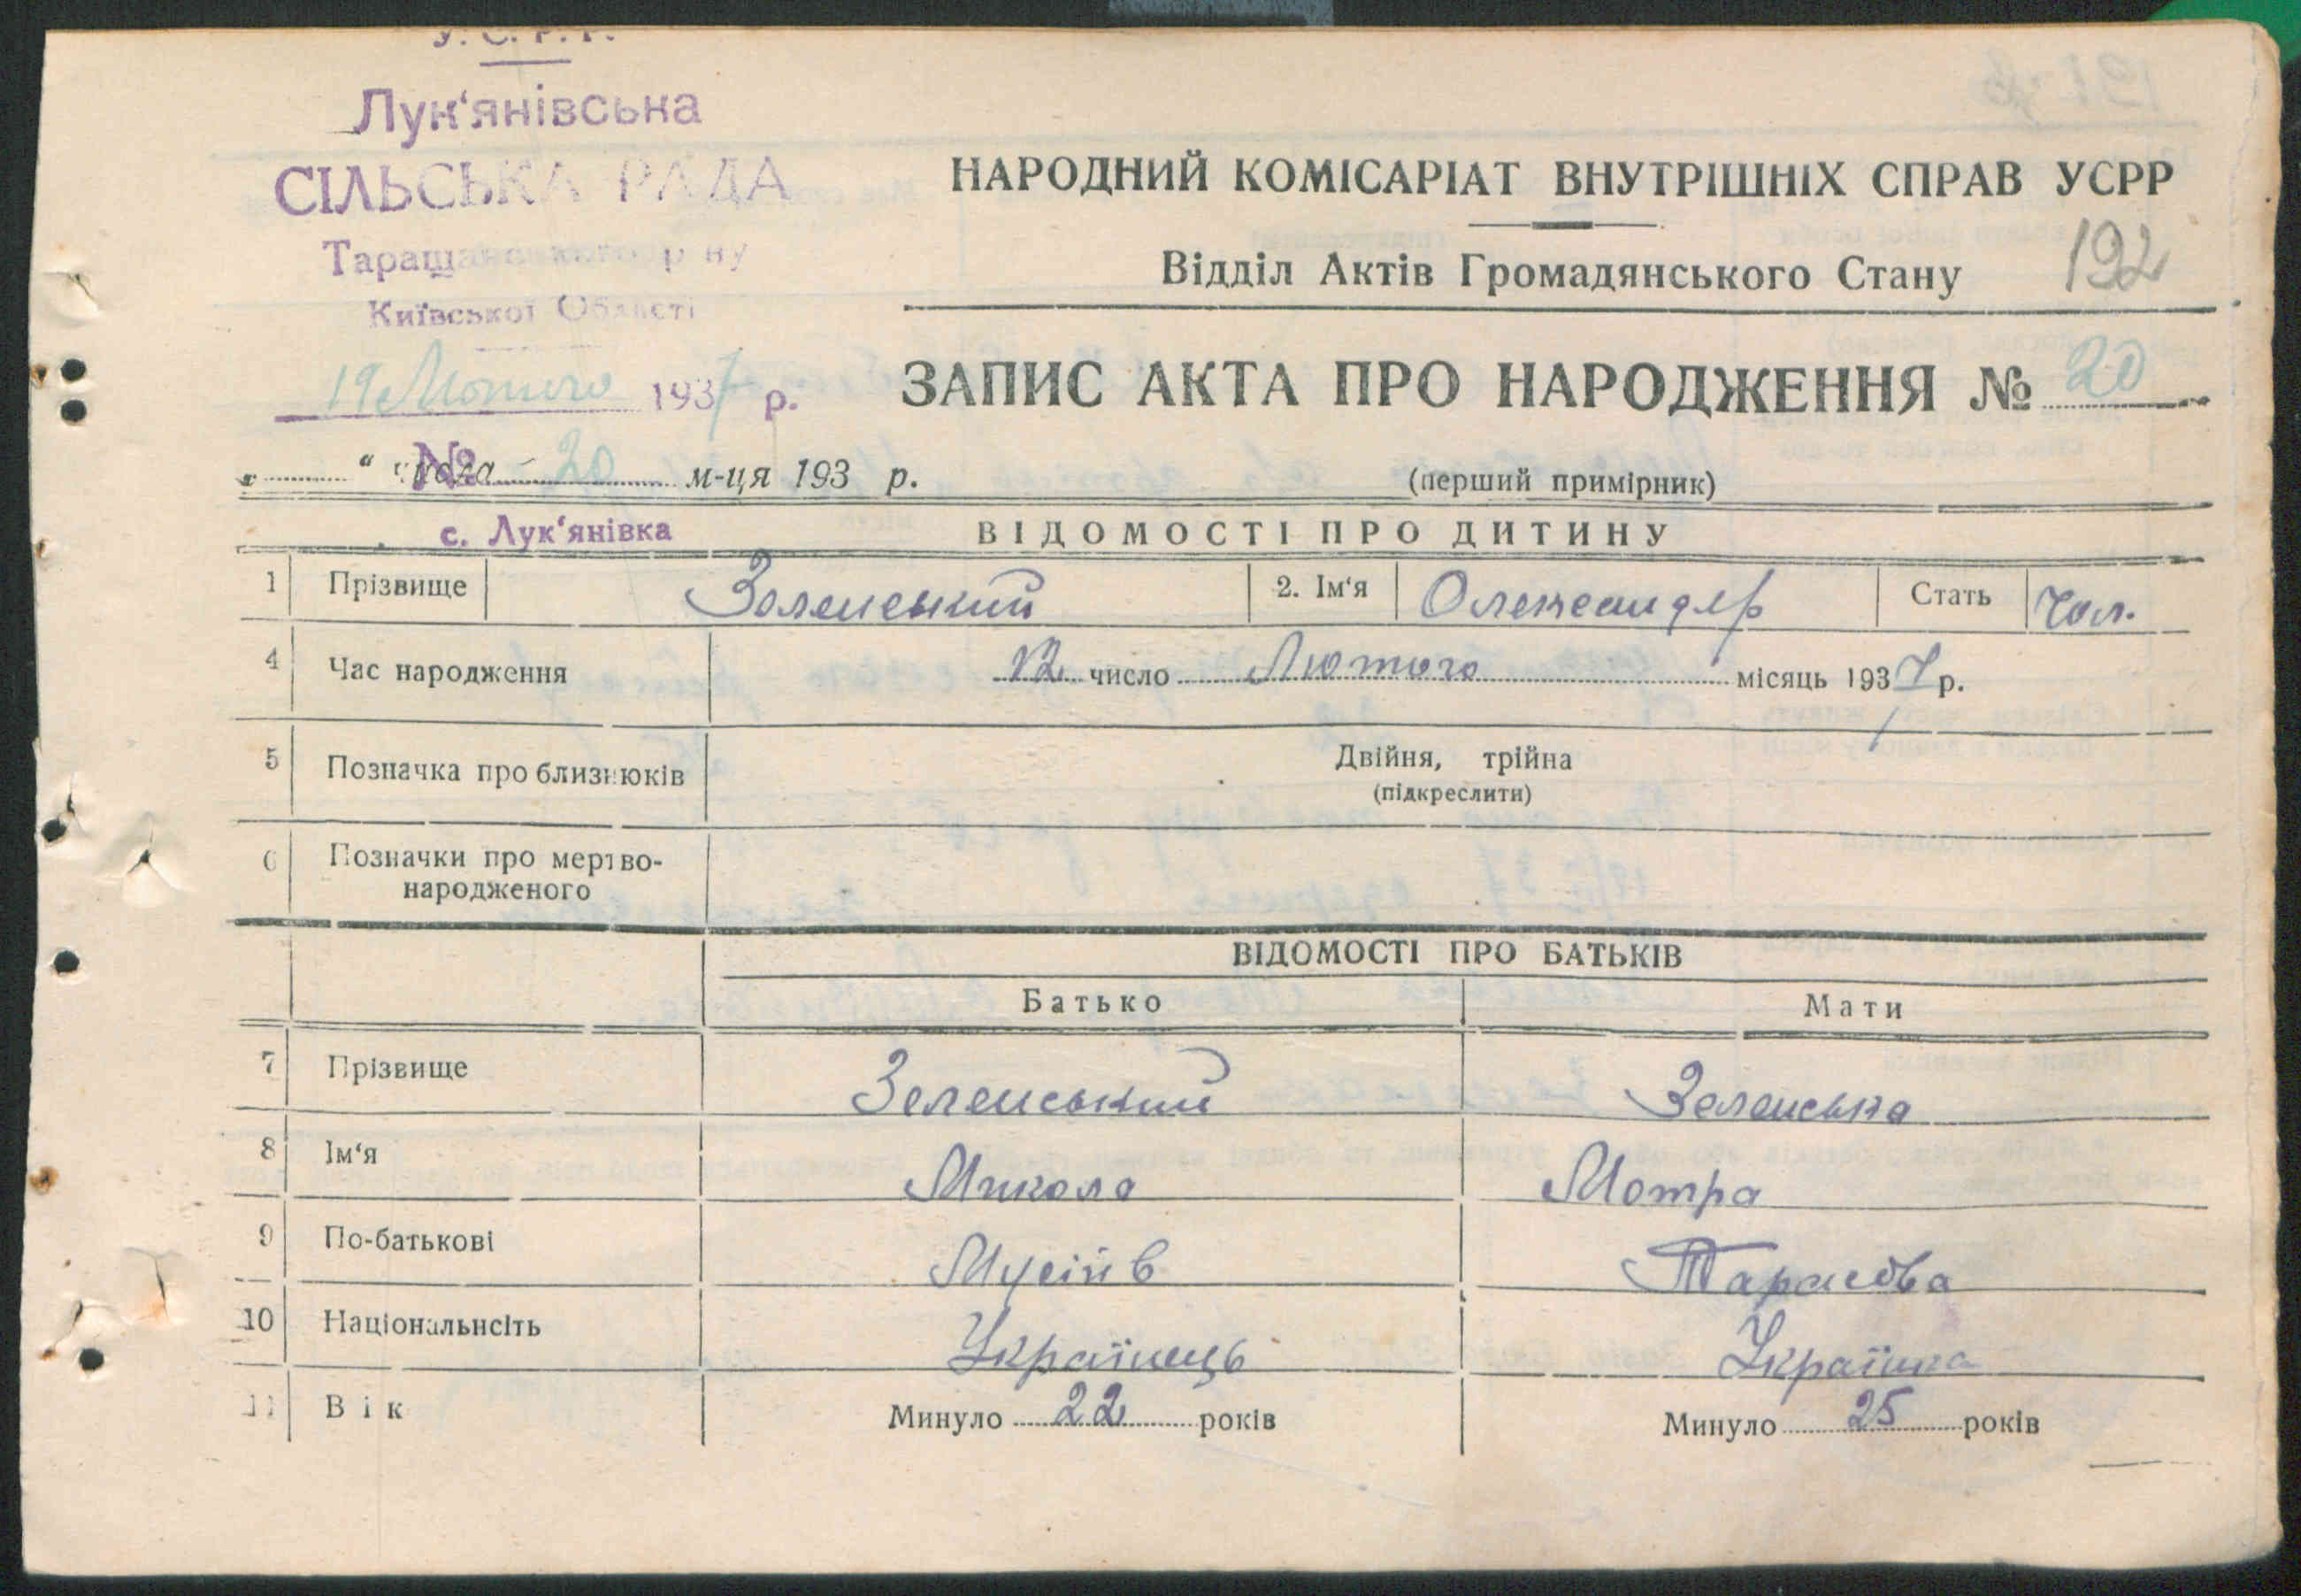 У. С. Р. Р.
Лук'янівська
СІЛЬСЬКА РАДА
Таращанського р ну
Київської Області
19 Лютого 1937 р.
№ 20
"......" ............ м-ця 193 р.
с. Лук'янівка
НАРОДНИЙ КОМІСАРІАТ ВНУТРІШНІХ СПРАВ УСРР
Відділ Актів Громадянського Стану
192
ЗАПИС АКТА ПРО НАРОДЖЕННЯ № 20
(перший примірник)
ВІДОМОСТІ ПРО ДИТИНУ
1 Прізвище Зеленський 2. Ім'я Олександер Стать Чол.
4 Час народження 12 число Лютого місяць 1937 р.
5 Позначка про близнюків Двійня, трійна
(підкреслити)
6 Позначки про мертво-
народженого
ВІДОМОСТІ ПРО БАТЬКІВ
Батько Мати
7 Прізвище Зеленський Зеленська
8 Ім'я Микола Мотра
9 По-батькові Мусіїв Тарасова
10 Національнсіть Українець Українка
11 Вік Минуло 22 років Минуло 25 років